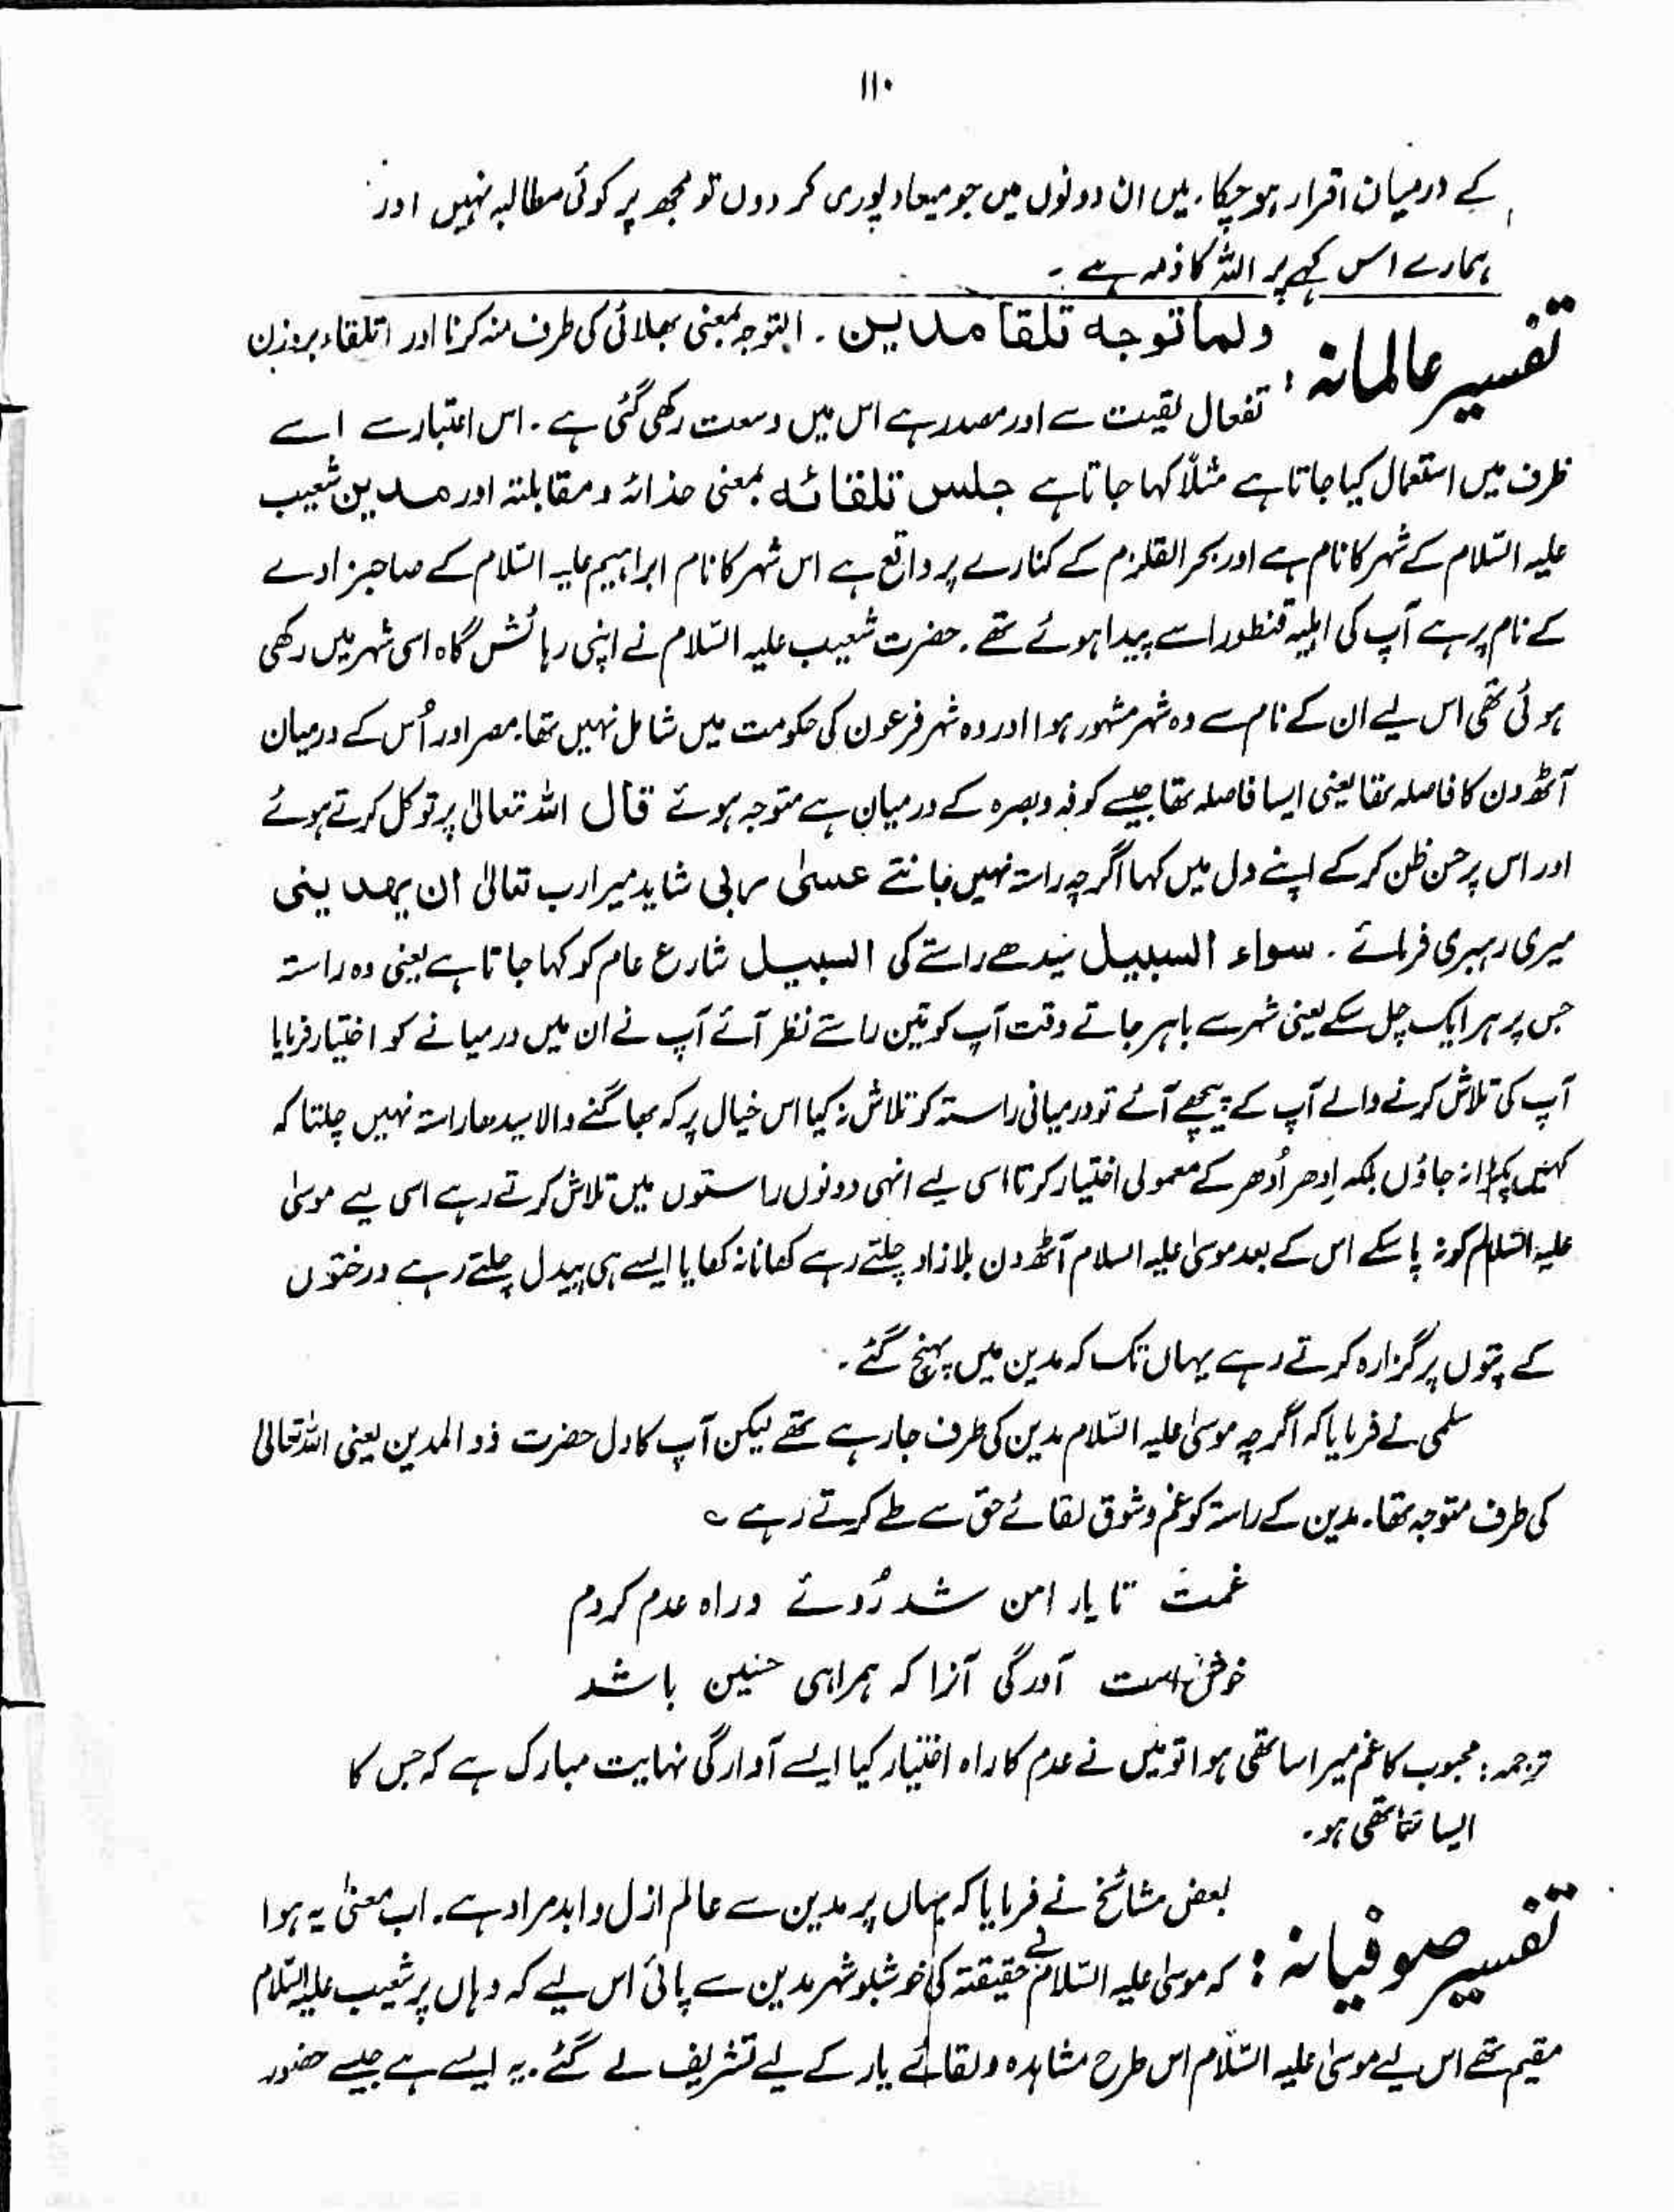 ۱۱۰
کے درمیان اقرار ہو چکا۔ میں ان دونوں میں جو میعاد پوری کر دوں تو مجھ پر کوئی مطالبہ نہیں اور
ہمارے اس کہے پر اللہ کا ذمہ ہے ۔
تفسیر عالمانہ : ولما توجه تلقا مدین ۔ التوجہ بمعنی بھلائی کی طرف منہ کرنا اور اتلقاء بروزن
تفعال لقیت سے اور مصدر ہے اس میں وسعت رکھی گئی ہے ۔ اس اعتبار سے اسے
ظرف میں استعمال کیا جاتا ہے مثلاً کہا جاتا ہے جلس تلقائه بمعنی حذائہ و مقابلتہ اور مدین شعیب
علیہ السّلام کے شہر کا نام ہے اور بحر القلزم کے کنارے پر واقع ہے اس شہر کا نام ابراہیم علیہ السّلام کے صاحبزادے
کے نام پر ہے آپ کی اہلیہ قنطورا سے پیدا ہوئے تھے ۔ حضرت شعیب علیہ السّلام نے اپنی رہائش گاہ اسی شہر میں رکھی
ہوئی تھی اس لیے ان کے نام سے وہ شہر مشہور ہوا اور وہ شہر فرعون کی حکومت میں شامل نہیں تھا۔ مصر اور اُس کے درمیان
آٹھ دن کا فاصلہ تھا یعنی ایسا فاصلہ تھا جیسے کوفہ و بصرہ کے درمیان ہے متوجہ ہوئے قال اللہ تعالیٰ پر توکل کرتے ہوئے
اور اس پر حسن ظن کر کے اپنے دل میں کہا اگرچہ راستہ نہیں جانتے عسیٰ ربی شاید میرا رب تعالیٰ ان یھدینی
میری رہبری فرمائے ۔ سواء السبیل سیدھے راستے کی السبیل شارع عام کو کہا جاتا ہے یعنی وہ راستہ
جس پر ہر ایک چل سکے یعنی شہر سے باہر جاتے وقت آپ کو تین راستے نظر آئے آپ نے ان میں درمیانے کو اختیار فرمایا
آپ کی تلاش کرنے والے آپ کے پیچھے آئے تو درمیانی راستہ کو تلاش نہ کیا اس خیال پر کہ بھاگنے والا سیدھا راستہ نہیں چلتا کہ
کہیں پکڑا نہ جاؤں بلکہ اِدھر اُدھر کے معمولی اختیار کرتا اسی لیے انہی دونوں راستوں میں تلاش کرتے رہے اسی لیے موسیٰ
علیہ السّلام کو نہ پا سکے اس کے بعد موسیٰ علیہ السلام آٹھ دن بلا زاد چلتے رہے کھانا نہ کھایا ایسے ہی پیدل چلتے رہے درختوں
کے پتوں پر گزارہ کرتے رہے یہاں تک کہ مدین میں پہنچ گئے ۔
سلمی نے فرمایا کہ اگرچہ موسیٰ علیہ السّلام مدین کی طرف جا رہے تھے لیکن آپ کا دل حضرت ذو المدین یعنی اللہ تعالیٰ
کی طرف متوجہ تھا۔ مدین کے راستہ کو غم و شوق لقائے حق سے طے کرتے رہے ؎
غمت تا یار امن شد رُوئے در راہ عدم کردم
خوش است آورگی آنرا کہ ہمراہی حنین باشد
ترجمہ : محبوب کا غم میرا ساتھی ہوا تو میں نے عدم کا راہ اختیار کیا ایسے آوارگی نہایت مبارک ہے کہ جس کا
ایسا ساتھی ہو۔
تفسیر صوفیانہ : بعض مشائخ نے فرمایا کہ یہاں پر مدین سے عالم ازل و ابد مراد ہے ۔ اب معنیٰ یہ ہوا
کہ موسیٰ علیہ السّلام نے حقیقتہ کی خوشبو شہر مدین سے پائی اس لیے کہ وہاں پر شعیب علیہ السّلام
مقیم تھے اس لیے موسیٰ علیہ السّلام اس طرح مشاہدہ و لقائے یار کے لیے تشریف لے گئے ۔ یہ ایسے ہے جیسے حضور